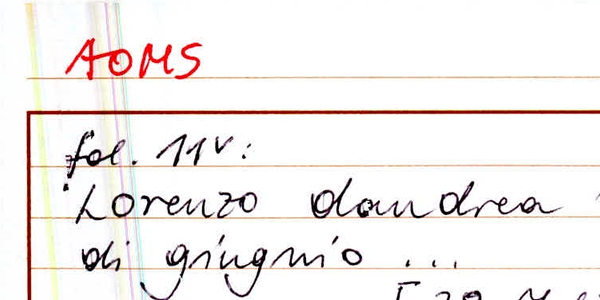 AOMS
fol. 11v:
Lorenzo dandrea
di giugnio ...